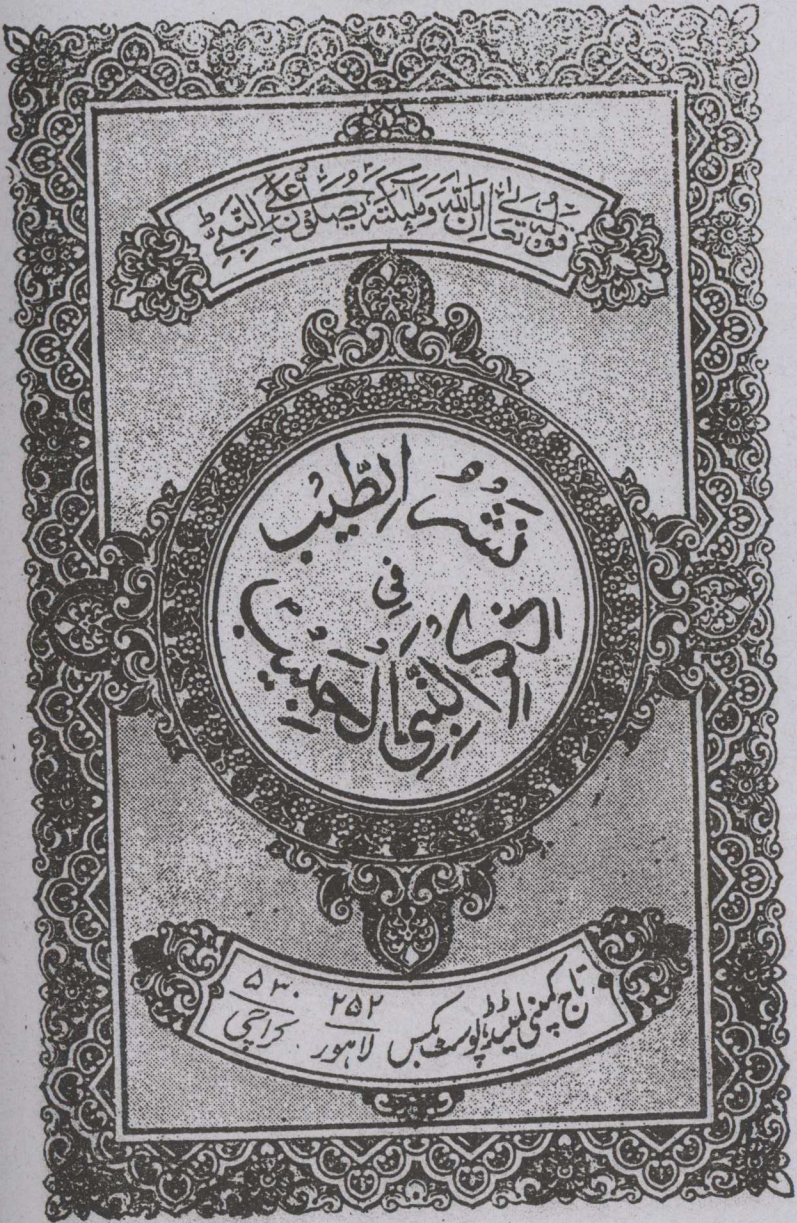 قوله تعالیٰ اِنَّ اللّٰهَ وَمَلٰٓئِكَتَهٗ يُصَلُّوْنَ عَلَى النَّبِیِّ ط
نَشْرُ الطِّيْبِ
فِی
ذِكْرِ النَّبِیِّ الْحَبِيْبِ
تاج کمپنی لمیٹیڈ پوسٹ بکس ۲۵۲ لاہور ۵۳۰ کراچی